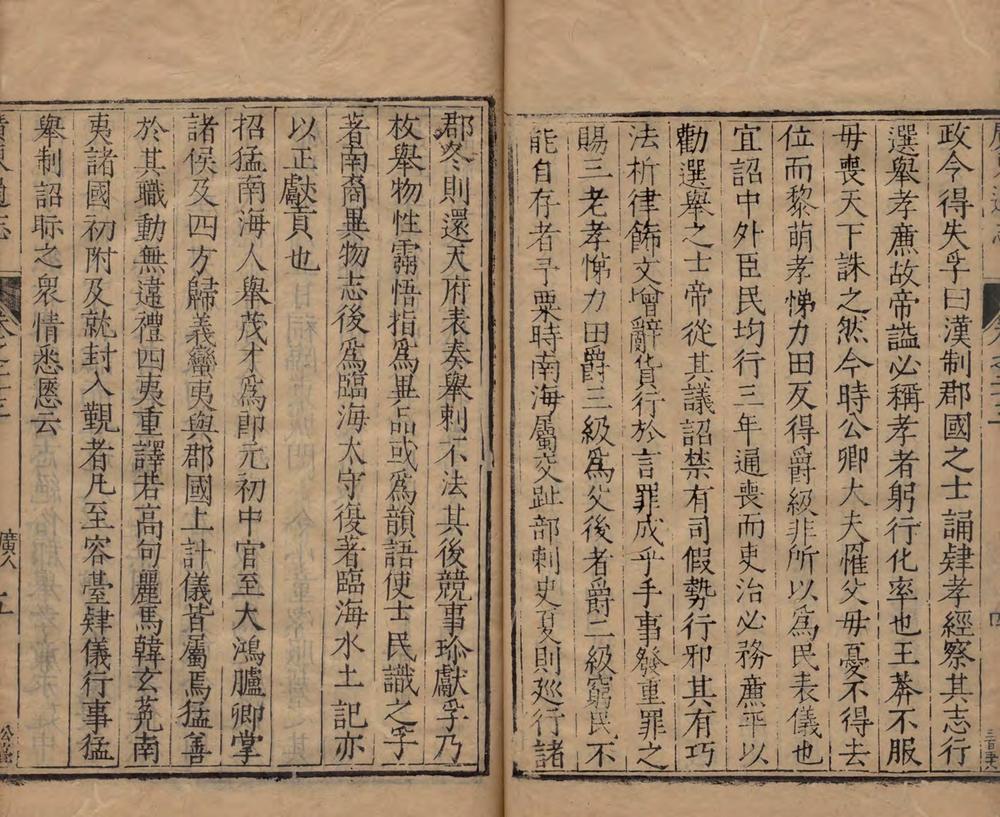 政令得失孚曰漢制郡國之士誦肄孝經察其志行
選舉孝廉故帝謚必稱孝者躬行化率也王莽不服
母喪天下誅之然今時公卿大夫罹父母憂不得去
位而黎萌孝悌力田反得爵級非所以爲民表儀也
宜詔中外臣民均行三年通喪而吏治必務廉平以
勸選舉之士帝從其議詔禁有司假勢行邪其有巧
法析律飾文增辭貨行於言罪成乎手事發重罪之
賜三老孝悌力田爵三級爲父後者爵二級窮民不
能自存者予粟時南海屬交趾部刺史夏則廵行諸
郡冬則還天府表奏舉刺不法其後競事珍獻孚乃
枚舉物性靈悟指爲異品或爲韻語使士民識之孚
著南裔異物志後爲臨海太守復著臨海水土記亦
以正獻貢也
招猛南海人舉茂才爲郎元初中官至大鴻臚卿掌
諸侯及四方歸義蠻夷與郡國上計儀皆屬焉猛善
於其職動無違禮四夷重譯若高句麗馬韓玄菟南
夷諸國初附及就封入覲者凡至容臺肄儀行事猛
舉制詔眎之衆情悉愿云